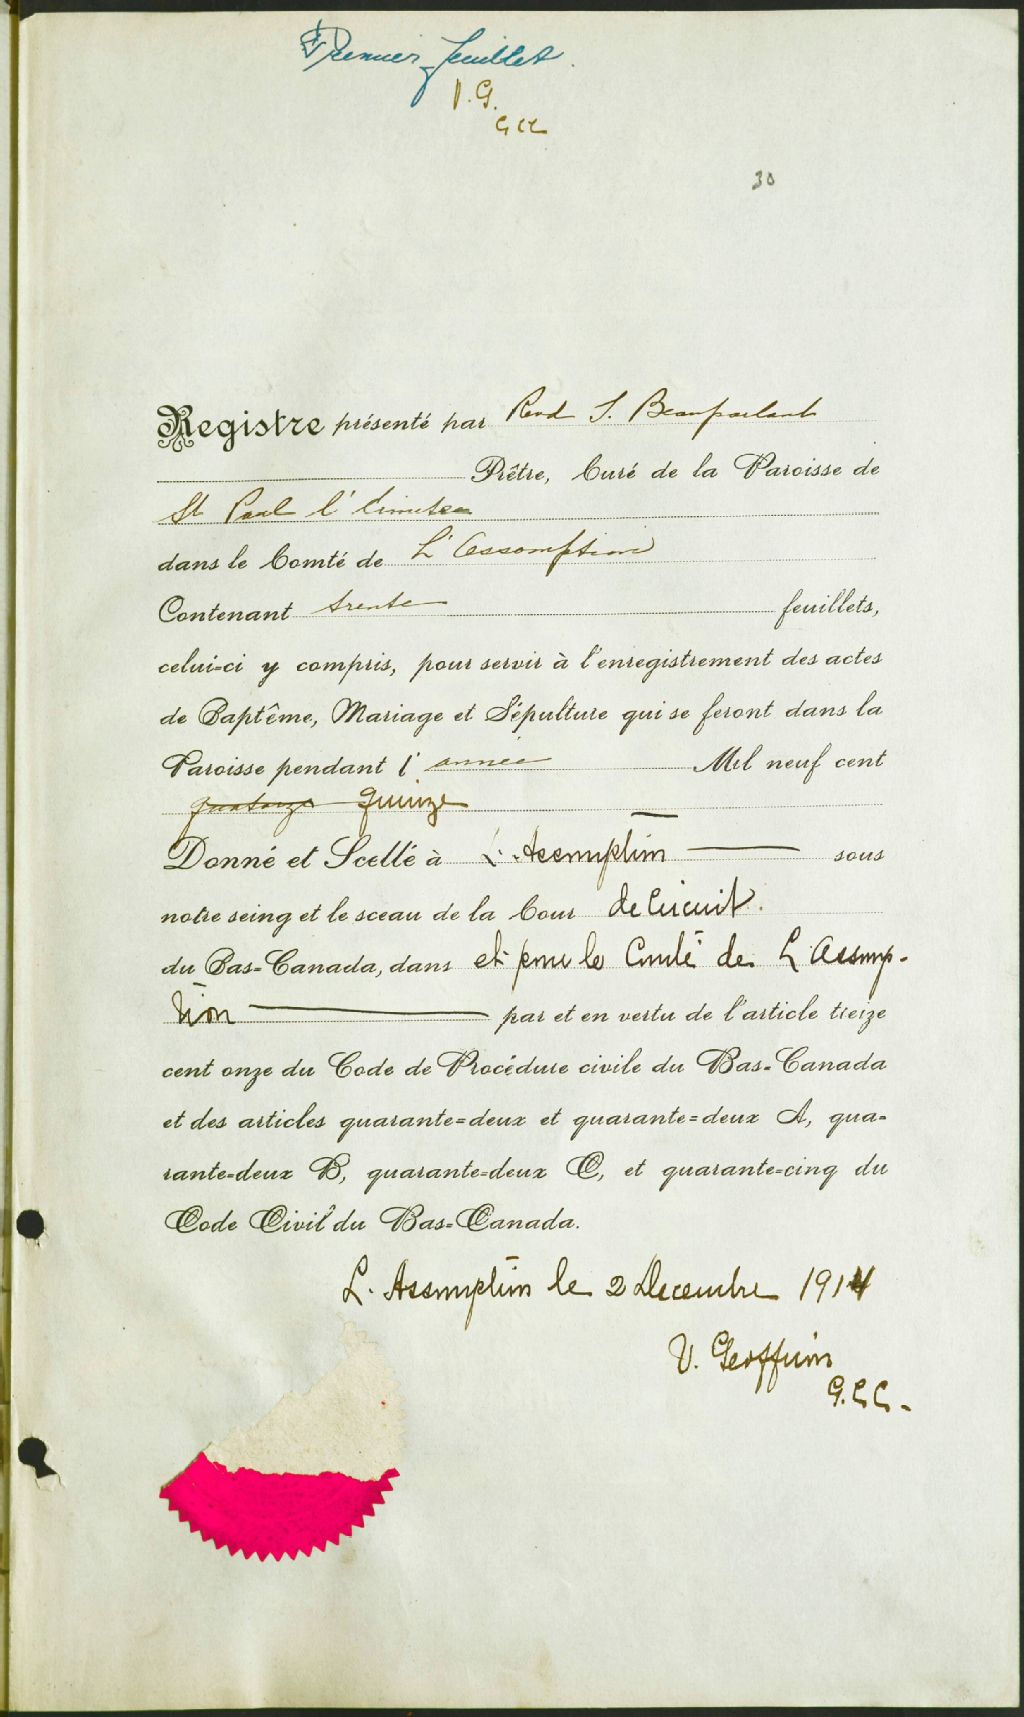 Premier feuillet.
V. G.
G CC
30
Registre présenté par Revd S. Beauparlant
Prêtre, Curé de la Paroisse de
St Paul l'Ermite
dans le Comté de L'Assomption
Contenant trente feuillets,
celui-ci y compris, pour servir à l'enregistrement des actes
de Baptême, Mariage et Sépulture qui se feront dans la
Paroisse pendant l'année Mil neuf cent
quatorze quinze
Donné et Scellé à L'Assomption sous
notre seing et le sceau de la Cour de Circuit.
du Bas-Canada, dans et pour le Comté de L'Assomp-
tion par et en vertu de l'article treize
cent onze du Code de Procédure civile du Bas-Canada
et des articles quarante=deux et quarante=deux A, qua-
rante=deux B, quarante=deux C, et quarante=cinq du
Code Civil du Bas-Canada.
L'Assomption le 2 Decembre 1914
V. Geoffrion
G.C.C.